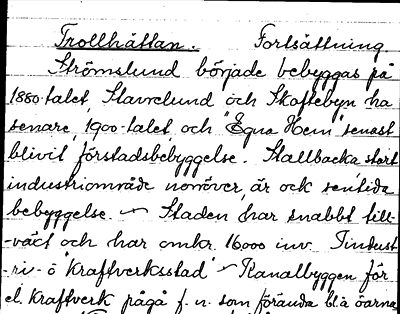 Trollhättan. Fortsättning
Strömslund började bebyggas på
1880-talet, Stavrelund och Skoftebyn ha
senare, 1900-talet och "Egna Hem" senast
blivit förstadsbebyggelse. Stallbacka, stort
industriområde norröver, är ock sentida
bebyggelse. — Staden har snabbt till-
-växt och har omkr. 16000 inv. Indust-
-ri- o "Kraftverksstad" — Kanalbyggen för
el. Kraftverk pågå f. n. som förändra bl.a öarna